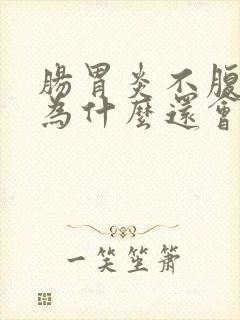 腸胃炎不腹
為什麼還會
一笑笙簫